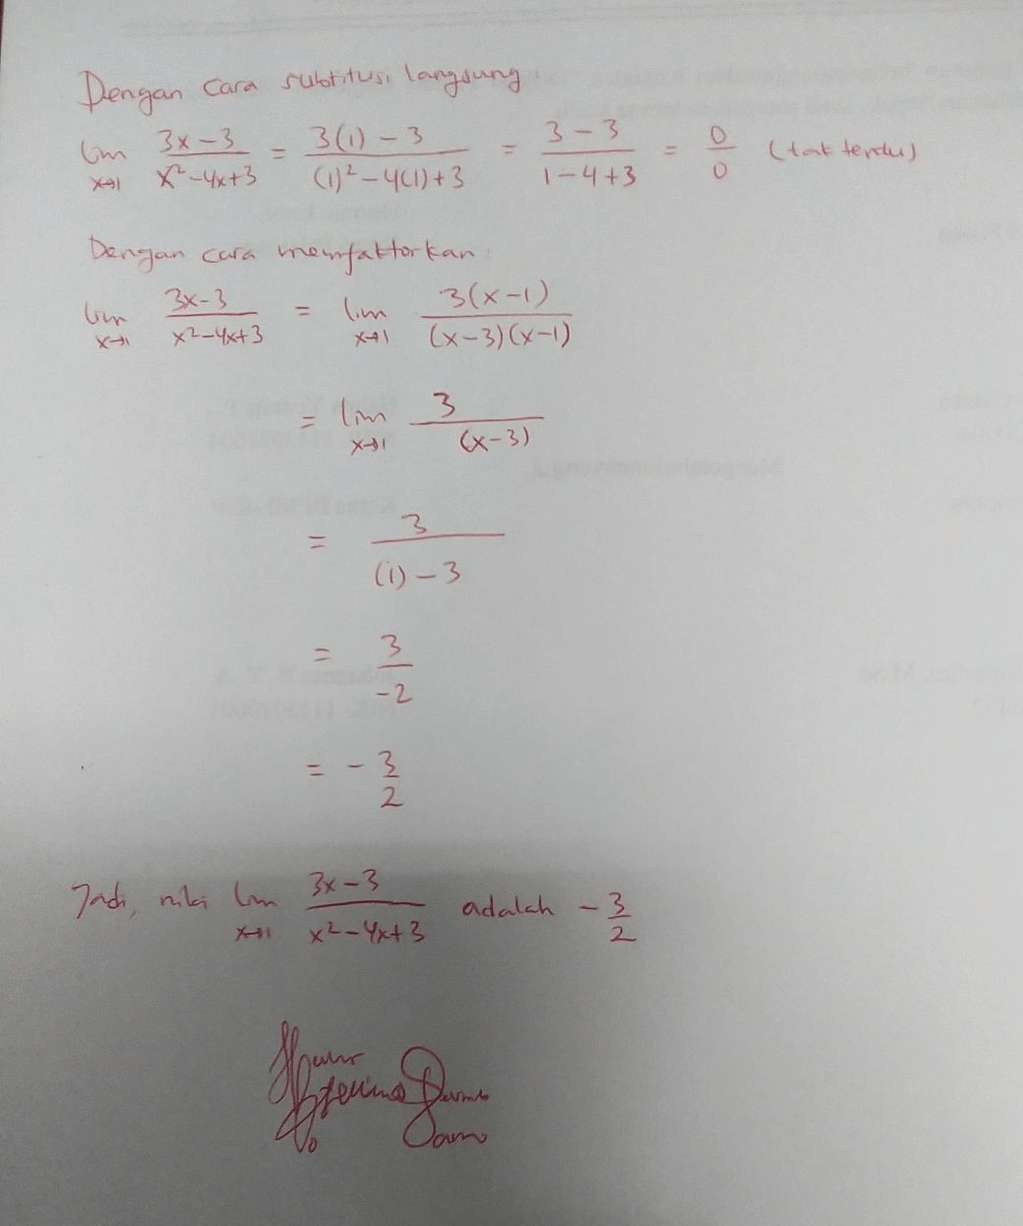 Dengan cara subtitusi langsung:
lim x→1 3x-3 / x²-4x+3 = 3(1)-3 / (1)²-4(1)+3 = 3-3 / 1-4+3 = 0/0 (tak tentu)
Dengan cara memfaktorkan:
lim x→1 3x-3 / x²-4x+3 = lim x→1 3(x-1) / (x-3)(x-1)
= lim x→1 3 / (x-3)
= 3 / (1)-3
= 3 / -2
= - 3/2
Jadi, nilai lim x→1 3x-3 / x²-4x+3 adalah - 3/2